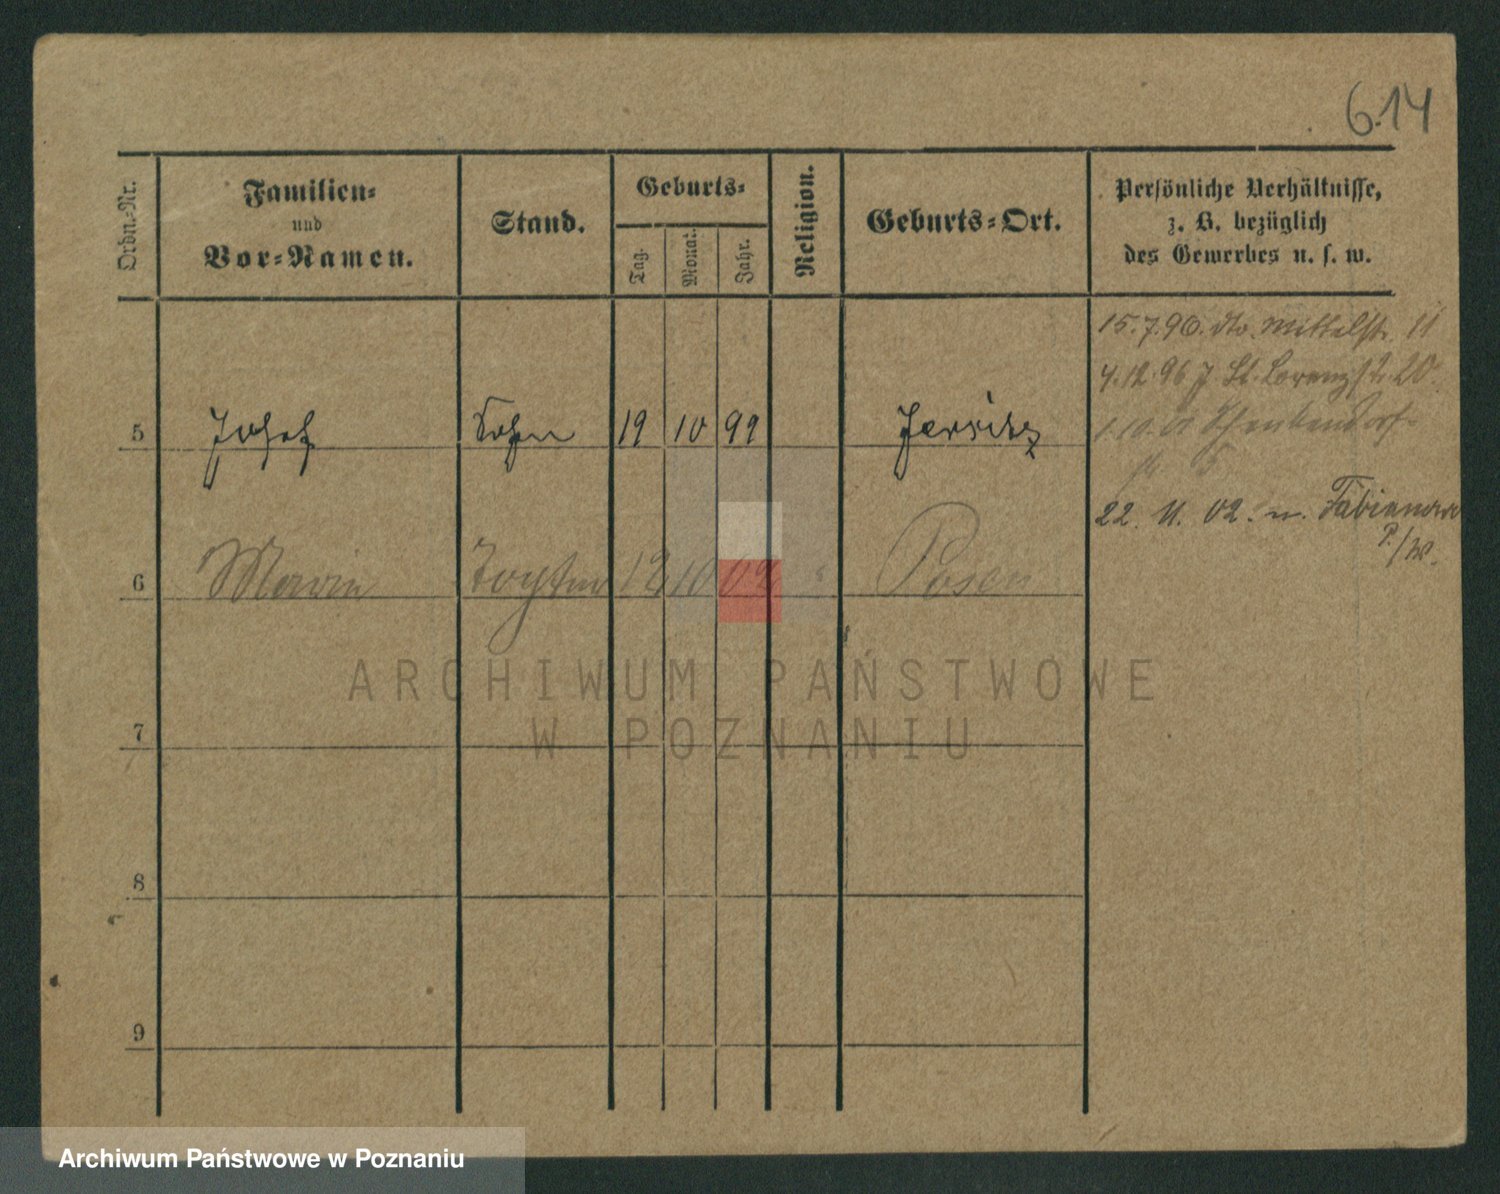 614
Ordn.-Nr.
Familien-
und
Vor-Namen.
Stand.
Geburts-
Tag.
Monat.
Jahr.
Religion.
Geburts-Ort.
Persönliche Verhältnisse,
z. B. bezüglich
des Gewerbes u. s. w.
15.7.96. do. Mittelstr. 11
4.12.96 J St. Lorenzstr. 20.
5 Josef Sohn 19 10 99 Jersitz
1.10.01
5
22. 11. 02. n. Fabianowo
P./W.
6 Marie Tochter 12 10 02 Posen
7
8
9
ARCHIWUM PAŃSTWOWE
W POZNANIU
Archiwum Państwowe w Poznaniu